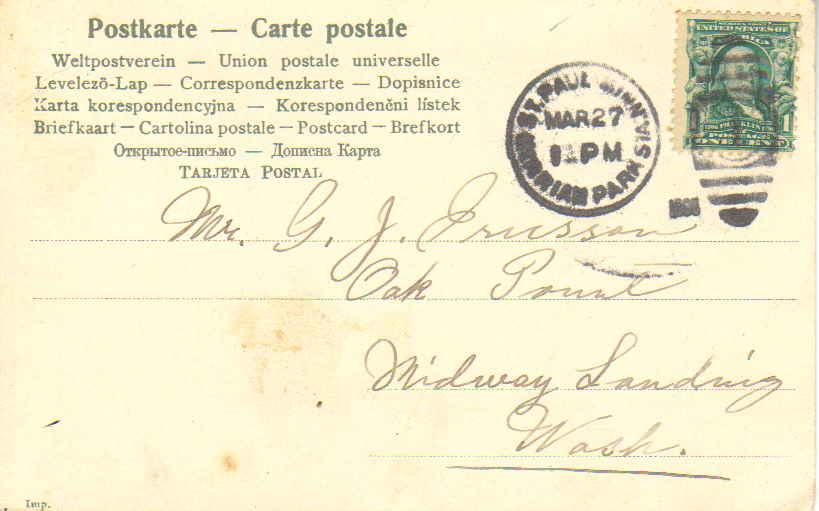 Postkarte — Carte postale
Weltpostverein — Union postale universelle
Levelező-Lap — Correspondenzkarte — Dopisnice
Karta korespondencyjna — Korespondenční lístek
Briefkaart — Cartolina postale — Postcard — Brefkort
Открытое-письмо — Дописна Карта
TARJETA POSTAL
UNITED STATES OF AMERICA
1 ONE CENT 1
ST. PAUL MINN.
MAR 27
PM
PARK STA.
Mr. G. J.
Oak Point
Midway Landing
Wash.
Imp.